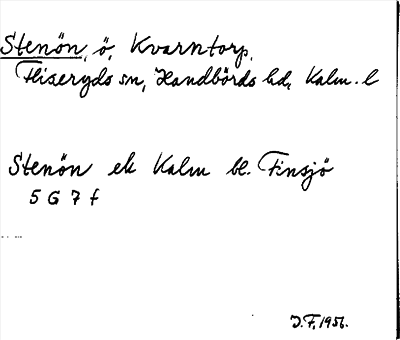 Stenön, ö, Kvarntorp,
Fliseryds sn, Handbörds hd, Kalm. l
Stenön ek Kalm bl. Finsjö
5 G 7 f
J.F. 1956.